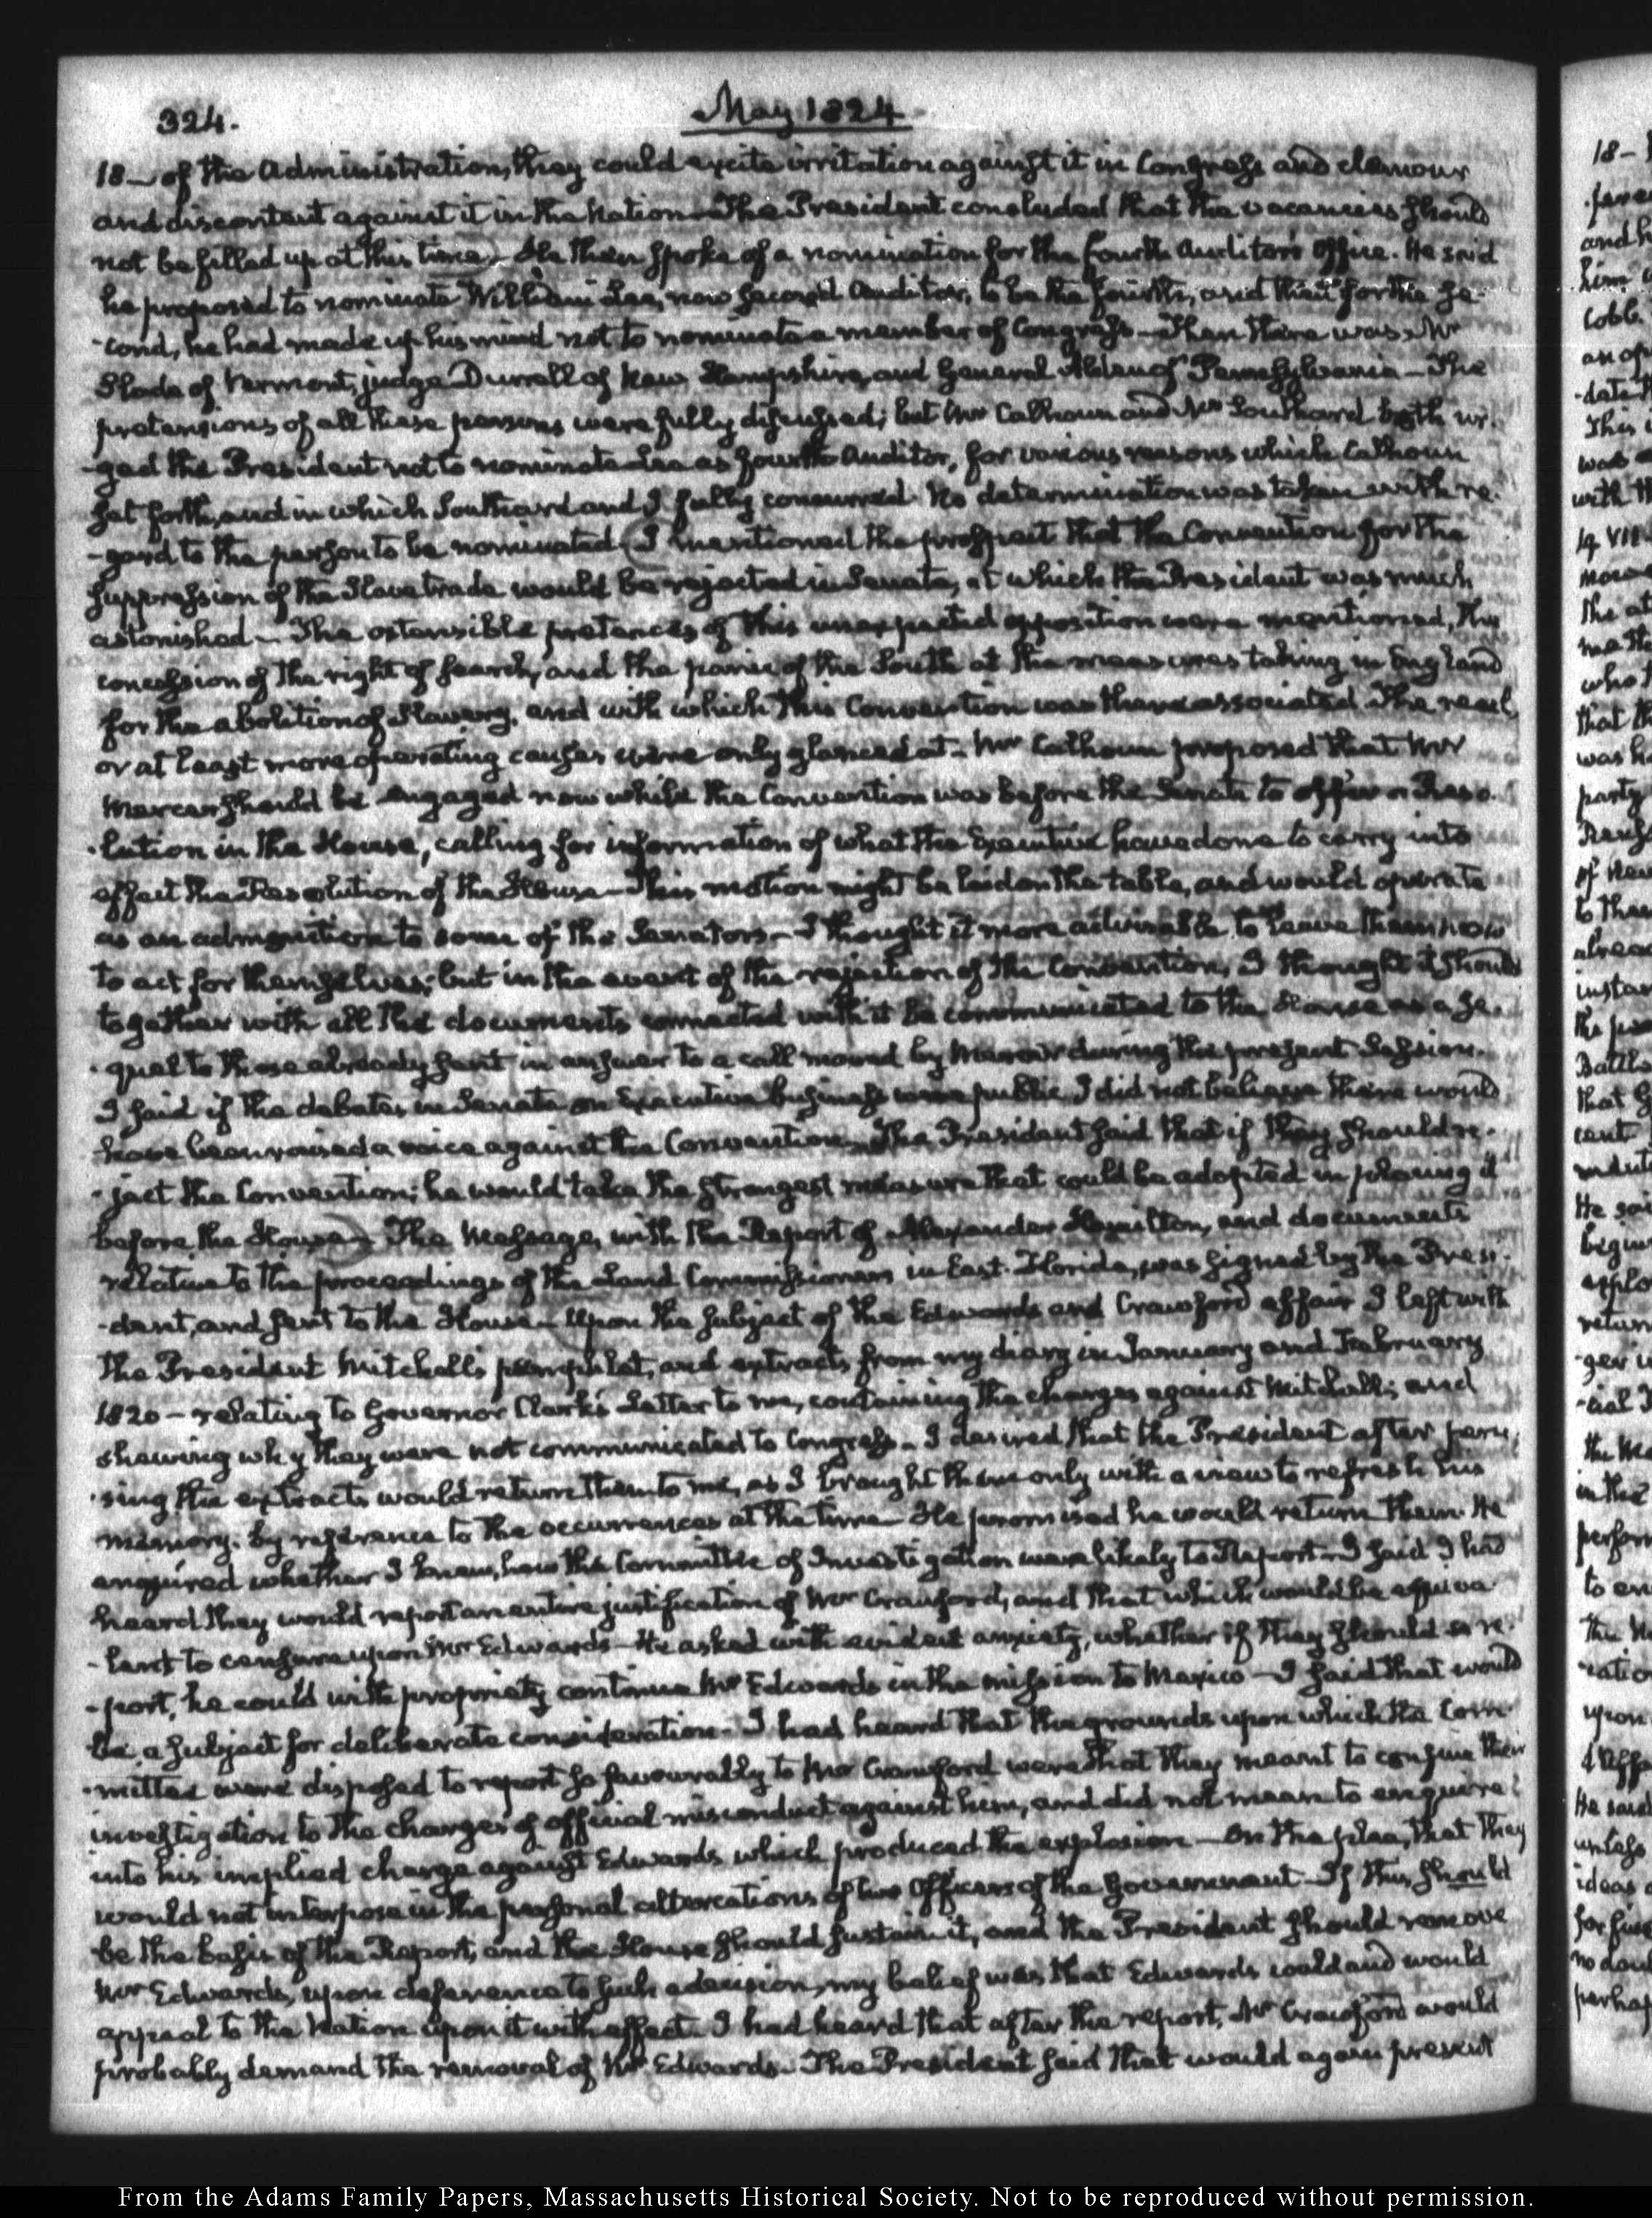 324.
May 1824
18 — of the Administration, they could excite irritation against it in Congress and clamour
and discontent against it in the Nation — The President concluded that the vacancies should
not be filled up at this time). He then spoke of a nomination for the fourth Auditor's Office. He said
he proposed to nominate William Lee, now second Auditor, to be the fourth, and then for the se-
-cond, he had made up his mind not to nominate a member of Congress — Then there was Mr
Slade of Vermont, judge Durrell of New Hampshire, and General Alden of Pennsylvania — The
pretensions of all these persons were fully discussed; but Mr Calhoun and Mr Southard both ur-
-ged the President not to nominate Lee as fourth Auditor, for various reasons which Calhoun
set forth, and in which Southard and I fully concurred. No determination was taken with re-
-gard to the person to be nominated (I mentioned the prospect that the Convention for the
suppression of the Slave trade would be rejected in Senate, at which the President was much
astonished — The ostensible pretences of this unexpected opposition were mentioned, the
concession of the right of search, and the panic of the South at the measures taking in England
for the abolition of Slavery, and with which this Convention was there associated. The real
or at least more operating causes were only glanced at — Mr Calhoun proposed that Mr
Mercer should be engaged now while the Convention was before the Senate to offer a Reso-
-lution in the House, calling for information of what the Executive have done to carry into
effect the Resolution of the House — This motion might be laid on the table, and would operate
as an admonition to some of the Senators — I thought it more advisable to leave them now
to act for themselves; but in the event of the rejection of the Convention, I thought it should
together with all the documents connected with it be communicated to the House as a se-
-quel to those already sent in answer to a call moved by Mercer during the present Session.
I said if the debates in Senate on Executive business were public I did not believe there would
have been raised a voice against the Convention — The President said that if they should re-
-ject the Convention; he would take the strongest measure that could be adopted in placing it
before the House). The Message, with the Report of Alexander Hamilton, and documents
relative to the proceedings of the Land Commissioners in East-Florida, was signed by the Presi-
-dent, and sent to the House — Upon the subject of the Edwards and Crawford affair I left with
the President Mitchell's pamphlet, and extracts from my diary in January and February
1820 — relating to Governor Clark's Letter to me, containing the charges against Mitchell; and
shewing why they were not communicated to Congress — I desired that the President after peru-
-sing the extracts would return them to me, as I brought them only with a view to refresh his
memory, by reference to the occurrences at the time — He promised he would return them. He
enquired whether I knew, how the Committee of Investigation were likely to Report — I said I had
heard they would report an entire justification of Mr Crawford, and that which would be equiva-
-lent to censure upon Mr Edwards — He asked with evident anxiety, whether if they should so re-
-port, he could with propriety continue Mr Edwards in the mission to Mexico — I said that would
be a subject for deliberate consideration — I had heard that the grounds upon which the Com-
-mittee were disposed to report so favourably to Mr Crawford were that they meant to confine their
investigation to the charges of official misconduct against him, and did not mean to enquire
into his implied charge against Edwards which produced the explosion — On the plea, that they
would not interpose in the personal altercations of two Officers of the Government — If this should
be the basis of the Report, and the House should sustain it, and the President should remove
Mr Edwards, upon deference to such a decision, my belief was that Edwards could and would
appeal to the Nation upon it with effect — I had heard that after the report, Mr Crawford would
probably demand the removal of Mr Edwards — The President said that would again present
From the Adams Family Papers, Massachusetts Historical Society. Not to be reproduced without permission.